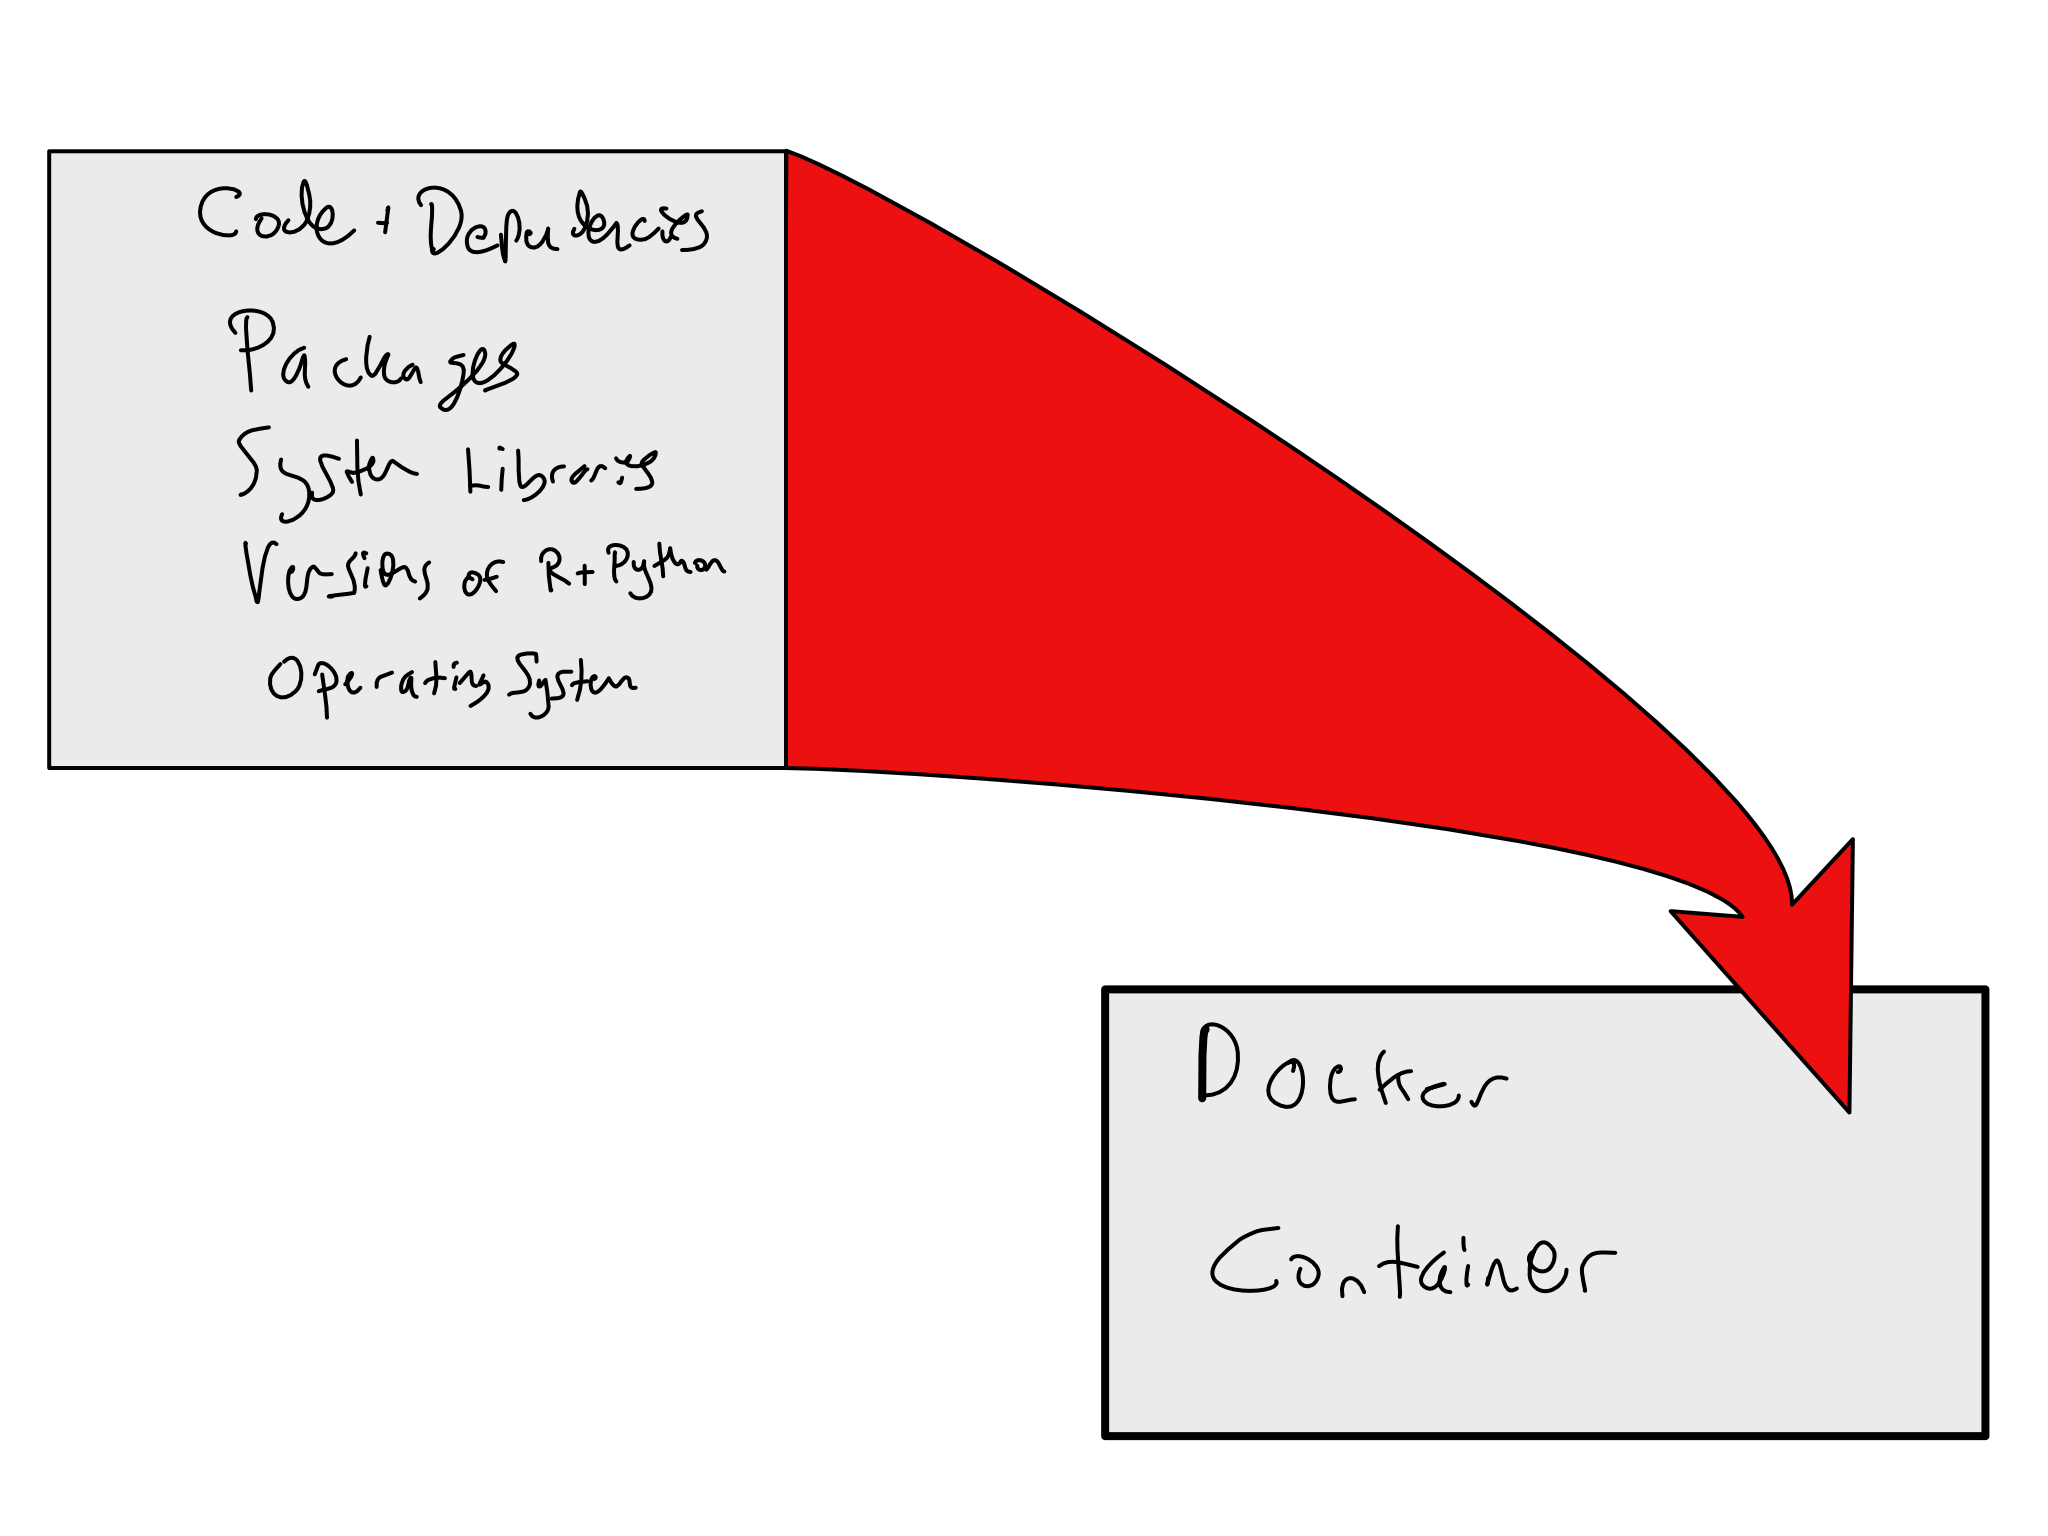 Code + Dependencies
Packages
System Libraries
Versions of R + Python
Operating System
Docker
Container